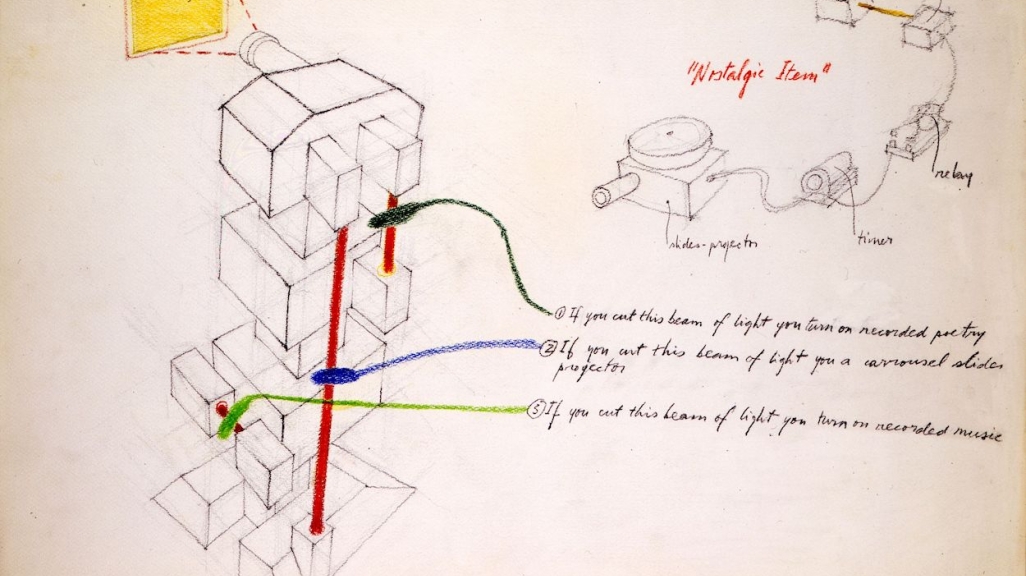 "Nostalgic Item"
relay
slides-projector
timer
① If you cut this beam of light you turn on recorded poetry
② If you cut this beam of light you a carrousel slides
projector
③ If you cut this beam of light you turn on recorded music